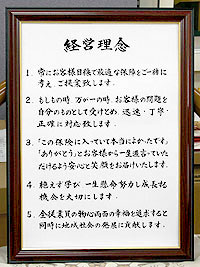 経営理念
1. 常にお客様目線で最適な保険をご一緒に
考え、ご提案致します。
2. もしもの時、万が一の時、お客様の問題を
自分のものとして受けとめ、迅速・丁寧・
正確に対応致します。
3. 「この保険に入っていて本当によかったです。
「ありがとう」とお客様から一生涯言っていた
だけるよう安心と笑顔をお届けいたします。
4. 絶えず学び、一生懸命努力し成長する
機会を大切にします。
5. 全従業員の物心両面の幸福を追求すると
同時に地域社会の発展に貢献します。